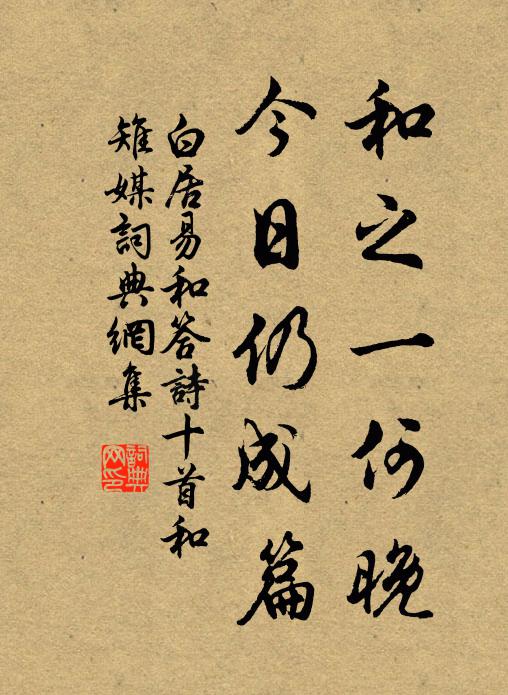 和之一何晚
今日仍成篇
白居易和答詩十首和
雉媒詞典網集
詞典
网印